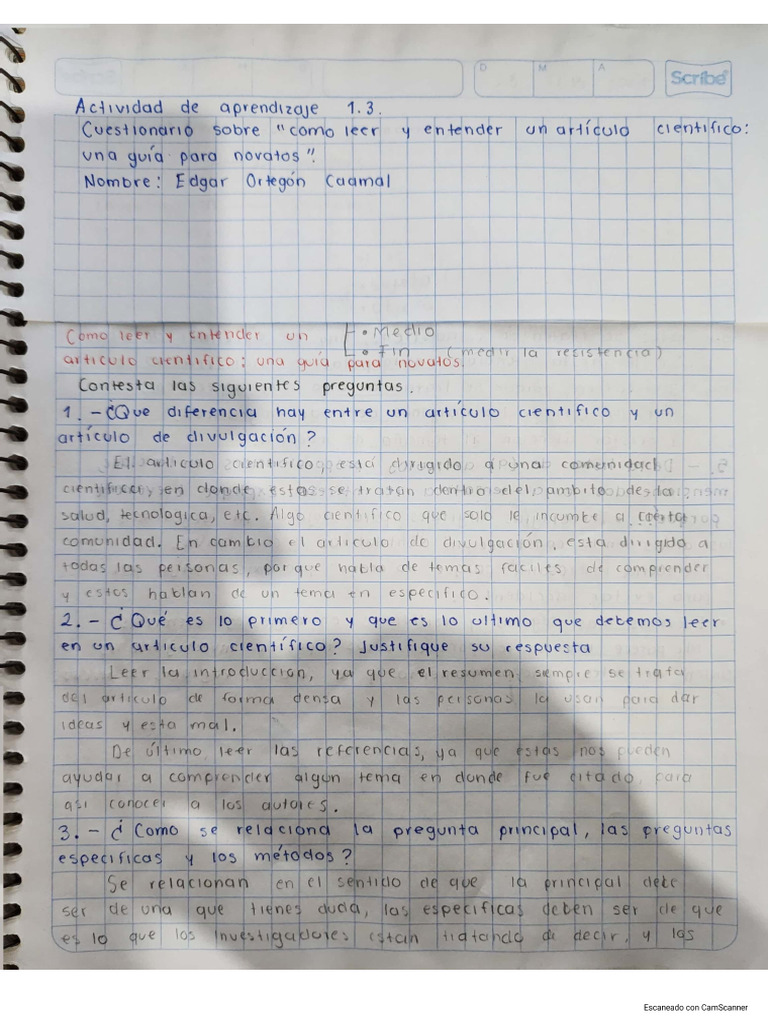 D M A
Scribe
Actividad de aprendizaje 1.3.
Cuestionario sobre "como leer y entender un artículo científico:
una guía para novatos".
Nombre: Edgar Ortegón Caamal
Como leer y entender un
• Medio
artículo científico: una guía para novatos.
• Fin (medir la resistencia)
Contesta las siguientes preguntas.
1.-¿Que diferencia hay entre un artículo científico y un
artículo de divulgación?
El articulo científico, está dirigido a una comunidad
científica, en donde estos se tratan dentro del ambito de la
salud, tecnologica, etc. Algo científico que solo le incumbe a cierta
comunidad. En cambio el articulo de divulgación, esta dirigido a
todas las personas, porque habla de temas faciles de comprender
y estos hablan de un tema en especifico.
2.-¿Qué es lo primero y que es lo ultimo que debemos leer
en un articulo científico? Justifique su respuesta
Leer la introduccion, ya que el resumen siempre se trata
del articulo de forma densa y las personas la usan para dar
ideas y esta mal.
De último leer las referencias, ya que estas nos pueden
ayudar a comprender algun tema en donde fue citado, para
asi conocer a los autores.
3.-¿Como se relaciona la pregunta principal, las preguntas
especificas y los métodos?
Se relacionan en el sentido de que la principal debe
ser de una que tienes duda, las especificas deben ser de que
es lo que los investigadores estan tratando de decir, y los
Escaneado con CamScanner